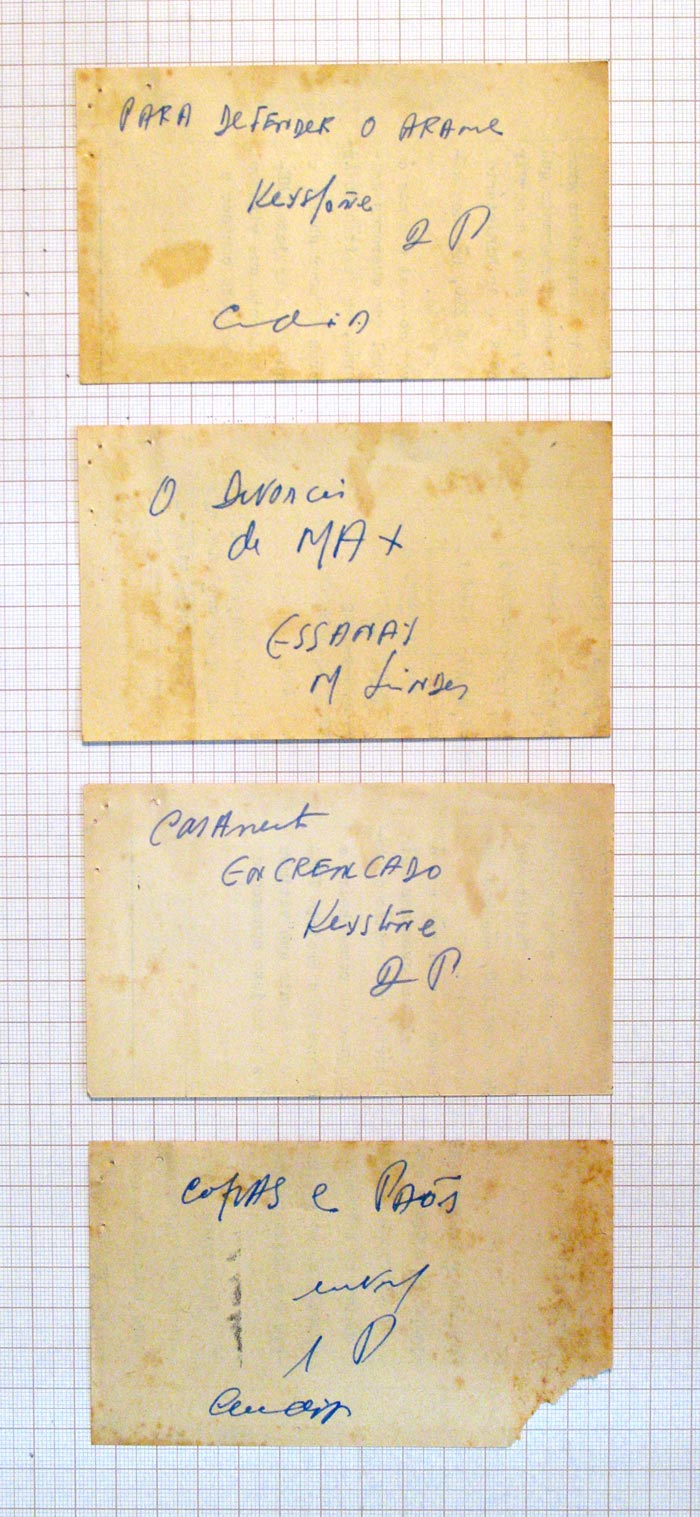 PARA DEFENDER O ARAME
Keystone
2 P
O Divorcio
de MAX
ESSANAY
M Linder
Casamento
ENCRENCADO
Keystone
2 P
COPAS e PAÓS
1 P